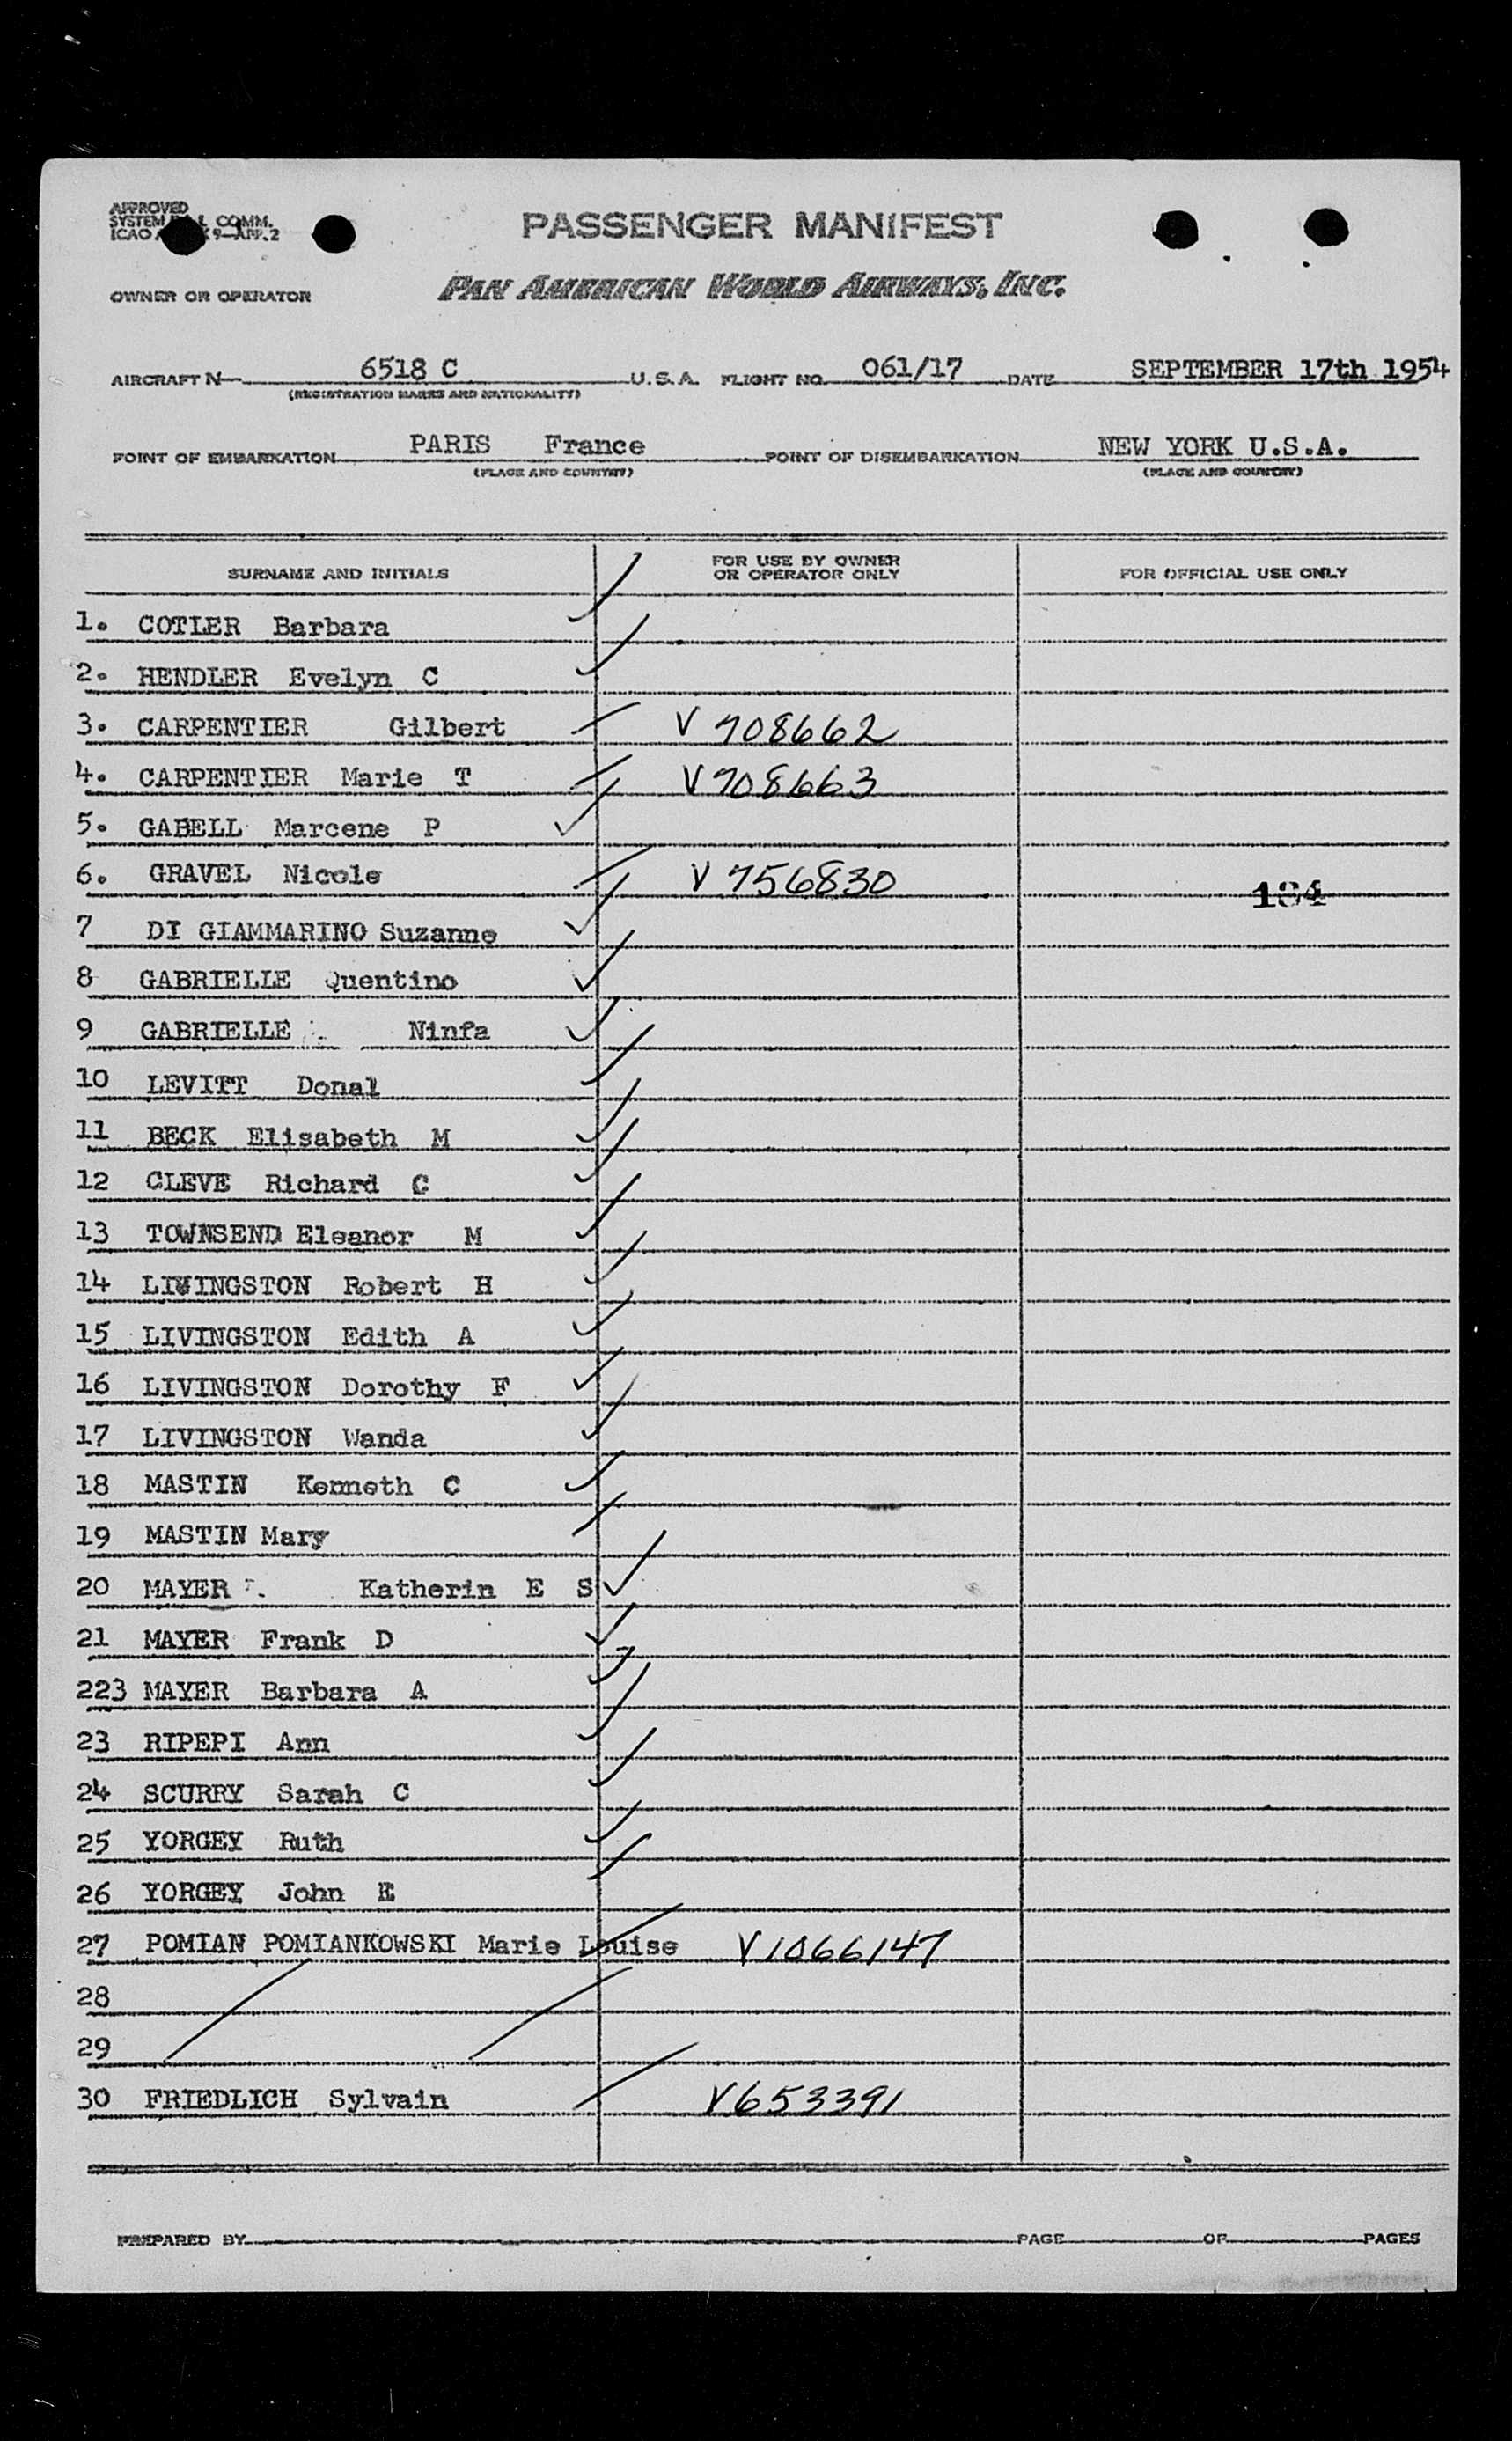 APPROVED
PASSENGER MANIFEST
SYSTEM COMM.
ICAO 9-APP.2
OWNER OR OPERATOR
PAN AMERICAN WORLD AIRWAYS, INC.
AIRCRAFT N 6518 C U.S.A. FLIGHT NO. 061/17 DATE SEPTEMBER 17th 1954
(REGISTRATION MARKS AND NATIONALITY)
POINT OF EMBARKATION PARIS France POINT OF DISEMBARKATION NEW YORK U.S.A.
(PLACE AND COUNTRY) (PLACE AND COUNTRY)
SURNAME AND INITIALS FOR USE BY OWNER OR OPERATOR ONLY FOR OFFICIAL USE ONLY
1. COTLER Barbara
2. HENDLER Evelyn C
3. CARPENTIER Gilbert V 708662
4. CARPENTIER Marie T V708663
5. GABELL Marcene P
6. GRAVEL Nicole V 756830 184
7 DI GIAMMARINO Suzanne
8 GABRIELLE Quentino
9 GABRIELLE Ninfa
10 LEVITT Donal
11 BECK Elisabeth M
12 CLEVE Richard C
13 TOWNSEND Eleanor M
14 LIVINGSTON Robert H
15 LIVINGSTON Edith A
16 LIVINGSTON Dorothy F
17 LIVINGSTON Wanda
18 MASTIN Kenneth C
19 MASTIN Mary
20 MAYER Katherin E S
21 MAYER Frank D
223 MAYER Barbara A
23 RIPEPI Ann
24 SCURRY Sarah C
25 YORGEY Ruth
26 YORGEY John E
27 POMIAN POMIANKOWSKI Marie Louise V1066147
28
29
30 FRIEDLICH Sylvain V653391
PREPARED BY PAGE OF PAGES